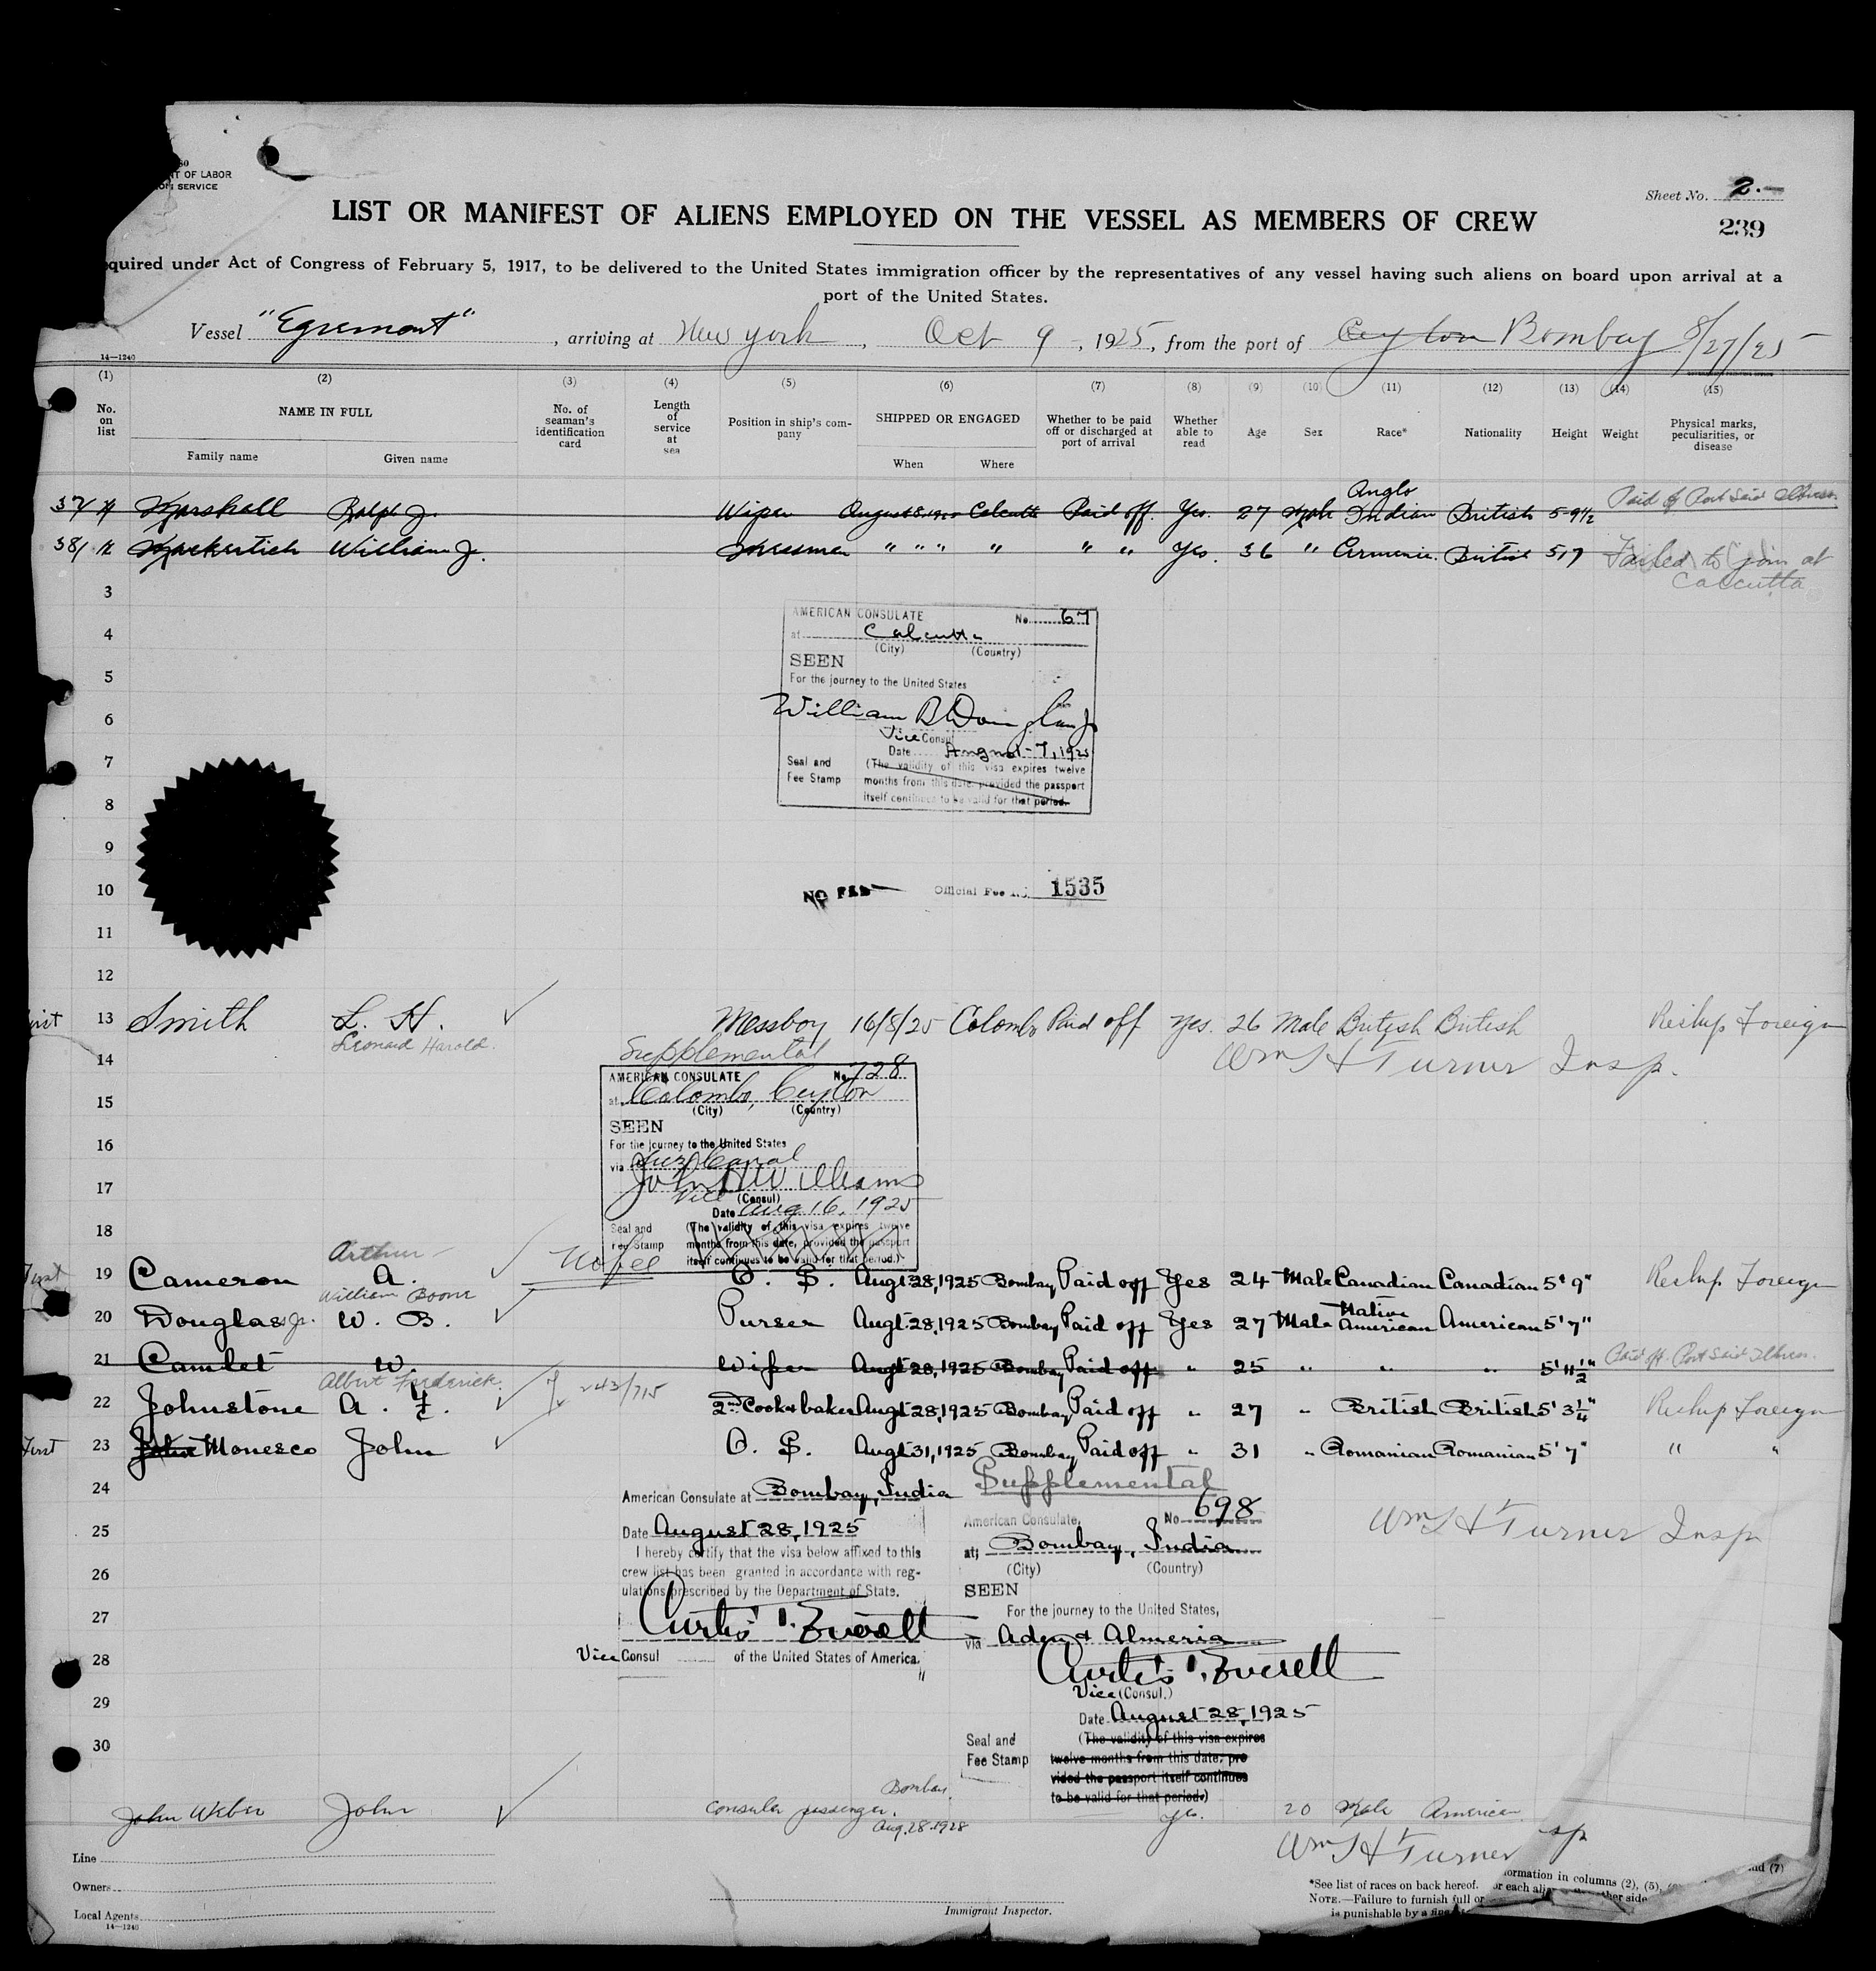 NT OF LABOR
ION SERVICE
Sheet No. 2.—
LIST OR MANIFEST OF ALIENS EMPLOYED ON THE VESSEL AS MEMBERS OF CREW
239
quired under Act of Congress of February 5, 1917, to be delivered to the United States immigration officer by the representatives of any vessel having such aliens on board upon arrival at a
port of the United States.
Vessel "Egremont", arriving at New York, Oct 9, 1925, from the port of Ceylon Bombay 8/27/25
14—1240
(1) (2) (3) (4) (5) (6) (7) (8) (9) (10) (11) (12) (13) (14) (15)
No. on list NAME IN FULL No. of seaman's identification card Length of service at sea Position in ship's company SHIPPED OR ENGAGED Whether to be paid off or discharged at port of arrival Whether able to read Age Sex Race* Nationality Height Weight Physical marks, peculiarities, or disease
Family name Given name When Where
37 Marshall Ralph J. Wiper August 8. 1925 Calcutta Paid off. Yes. 27 Male Anglo Indian British 5-9½ Paid off Port Said illness.
38 William J. Messman " " " " " " Yes. 36 " Armenia. British 5,7 Failed to join at Calcutta
3
4
5
6
7
8
9
10
11
12
AMERICAN CONSULATE No. 67
at Calcutta
(City) (Country)
SEEN
For the journey to the United States
William B Douglas Jr
Vice Consul
Date August 7, 1925
Seal and Fee Stamp
(The validity of this visa expires twelve
months from this date, provided the passport
itself continues to be valid for that period.
NO FEE Official Fee No. 1535
13 Smith L. H. Messboy 16/8/25 Colombo Paid off yes. 26 Male British British Reship Foreign
Leonard Harold.
14
Wm H Turner Insp.
Supplemental
AMERICAN CONSULATE No. 728
at Colombo, Ceylon
(City) (Country)
15
SEEN
16
For the journey to the United States
via Suez Canal
17
John H Williams
Vice (Consul)
Date Aug. 16, 1925
18
Seal and Fee Stamp
(The validity of this visa expires twelve
months from this date, provided the passport
itself continues to be valid for that period.)
No fee
Arthur
First 19 Cameron A. O. S. Augt 28, 1925 Bombay Paid off Yes 24 Male Canadian Canadian 5' 9" Reship Foreign
William Boone
20 Douglas Jr. W. B. Purser Augt. 28, 1925 Bombay Paid off Yes 27 Male Native American American 5' 7"
21 Camlet W. Wiper Augt 28, 1925 Bombay Paid off " 25 " " " 5' 11½" Paid off. Port Said illness.
Albert Frederick.
22 Johnstone A. F. 243/715 2nd Cook & baker Augt 28, 1925 Bombay Paid off " 27 " British British 5' 3¼" Reship Foreign
First 23 John Monesco John O. S. Augt 31, 1925 Bombay Paid off " 31 " Romanian Romanian 5' 7" " "
24
25
26
27
28
29
30
American Consulate at Bombay, India
Date August 28, 1925
I hereby certify that the visa below affixed to this
crew list has been granted in accordance with reg-
ulations prescribed by the Department of State.
Curtis T. Everett
Vice Consul of the United States of America.
Supplemental
American Consulate, No 698
at; Bombay, India
(City) (Country)
SEEN
For the journey to the United States,
via Aden & Almeria
Curtis T. Everett
Vice (Consul.)
Date August 28, 1925
Seal and Fee Stamp
(The validity of this visa expires
twelve months from this date, pro
vided the passport itself continues
to be valid for that period.)
Wm H Turner Insp
John Weber John Consular passenger. Bombay. Aug. 28. 1928 Yes. 20 Male American
Wm H Turner sp
Line
Owners
Local Agents
14—1240
Immigrant Inspector.
*See list of races on back hereof.
NOTE.—Failure to furnish full or
is punishable by a fine
ormation in columns (2), (5),
or each ali
ther side
nd (7)